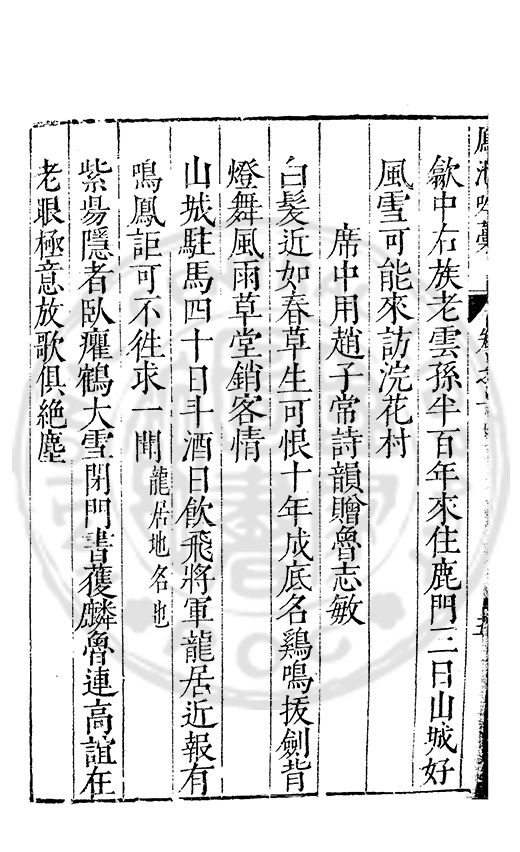 歙中右族老雲孫半百年來住鹿門三日山城好
風雪可能來訪浣花村
席中用趙子常詩韻贈魯志敏
白髮近如春草生可恨十年成底名鷄鳴拔劍背
燈舞風雨草堂銷客情
山城駐馬四十日斗酒日飲飛將軍龍居近報有
鳴鳳詎可不徃求一聞龍居地名也
紫陽隱者臥癯鶴大雪閉門書獲麟魯連高誼在
老眼極意放歌俱絶塵